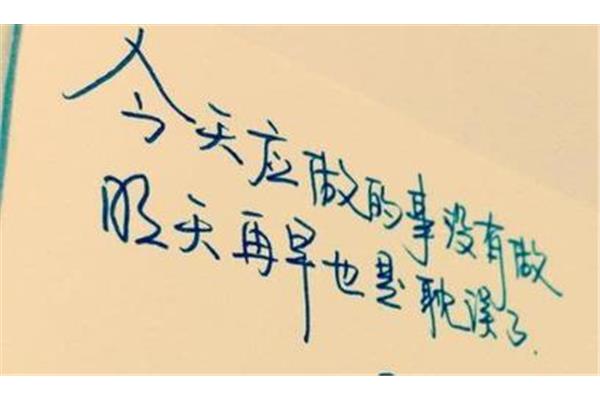 今天应做的事没有做
明天再早也是耽误了.